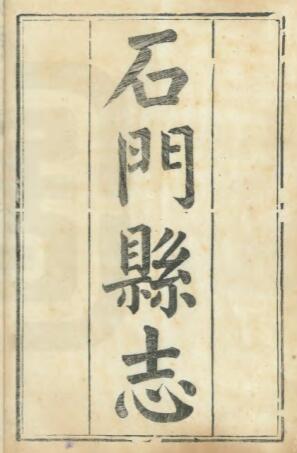 石門縣志